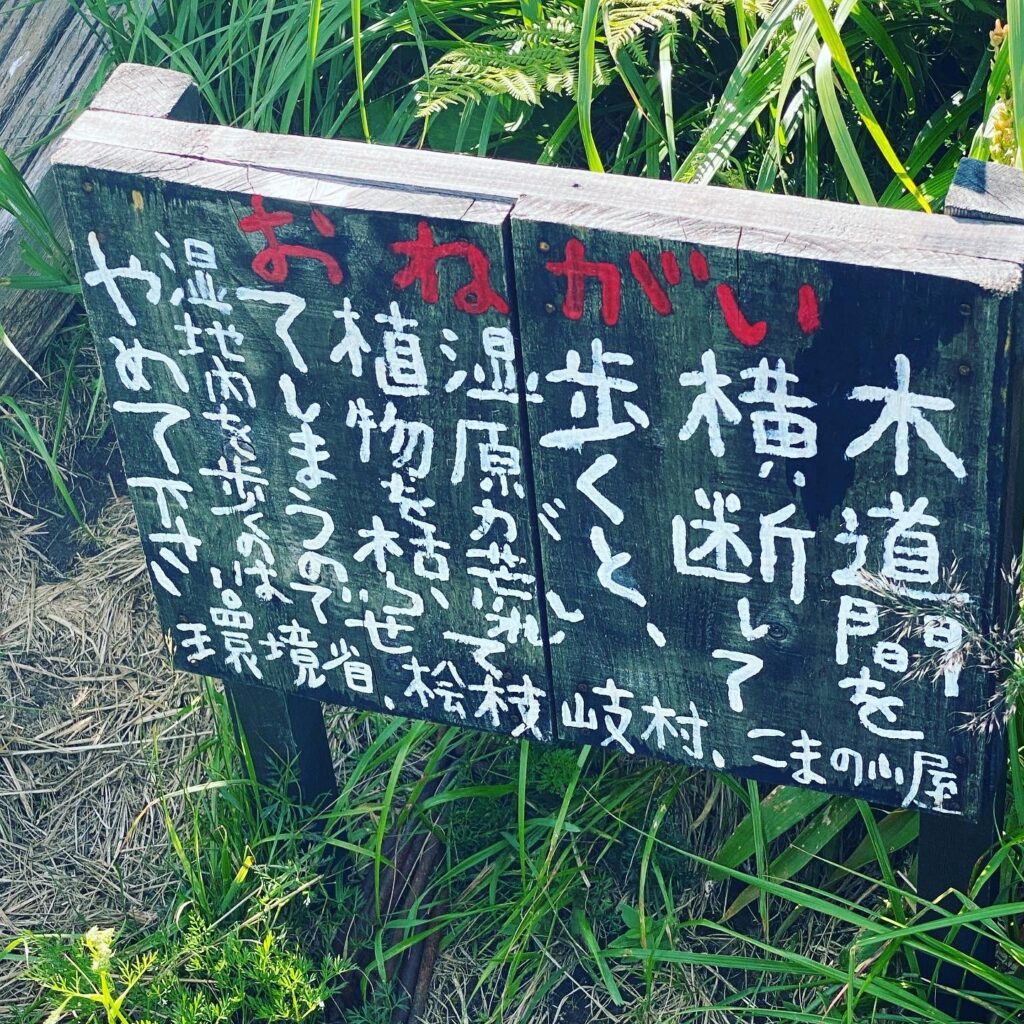 おねがい
木道間を
横断して
歩くと、
湿原が荒れて
植物を枯らせ
てしまうので
湿地内を歩くのは
やめて下さい。
環境省、桧枝岐村、こまの小屋